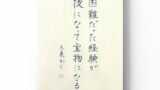 困難だった経験が
後になって宝物になる